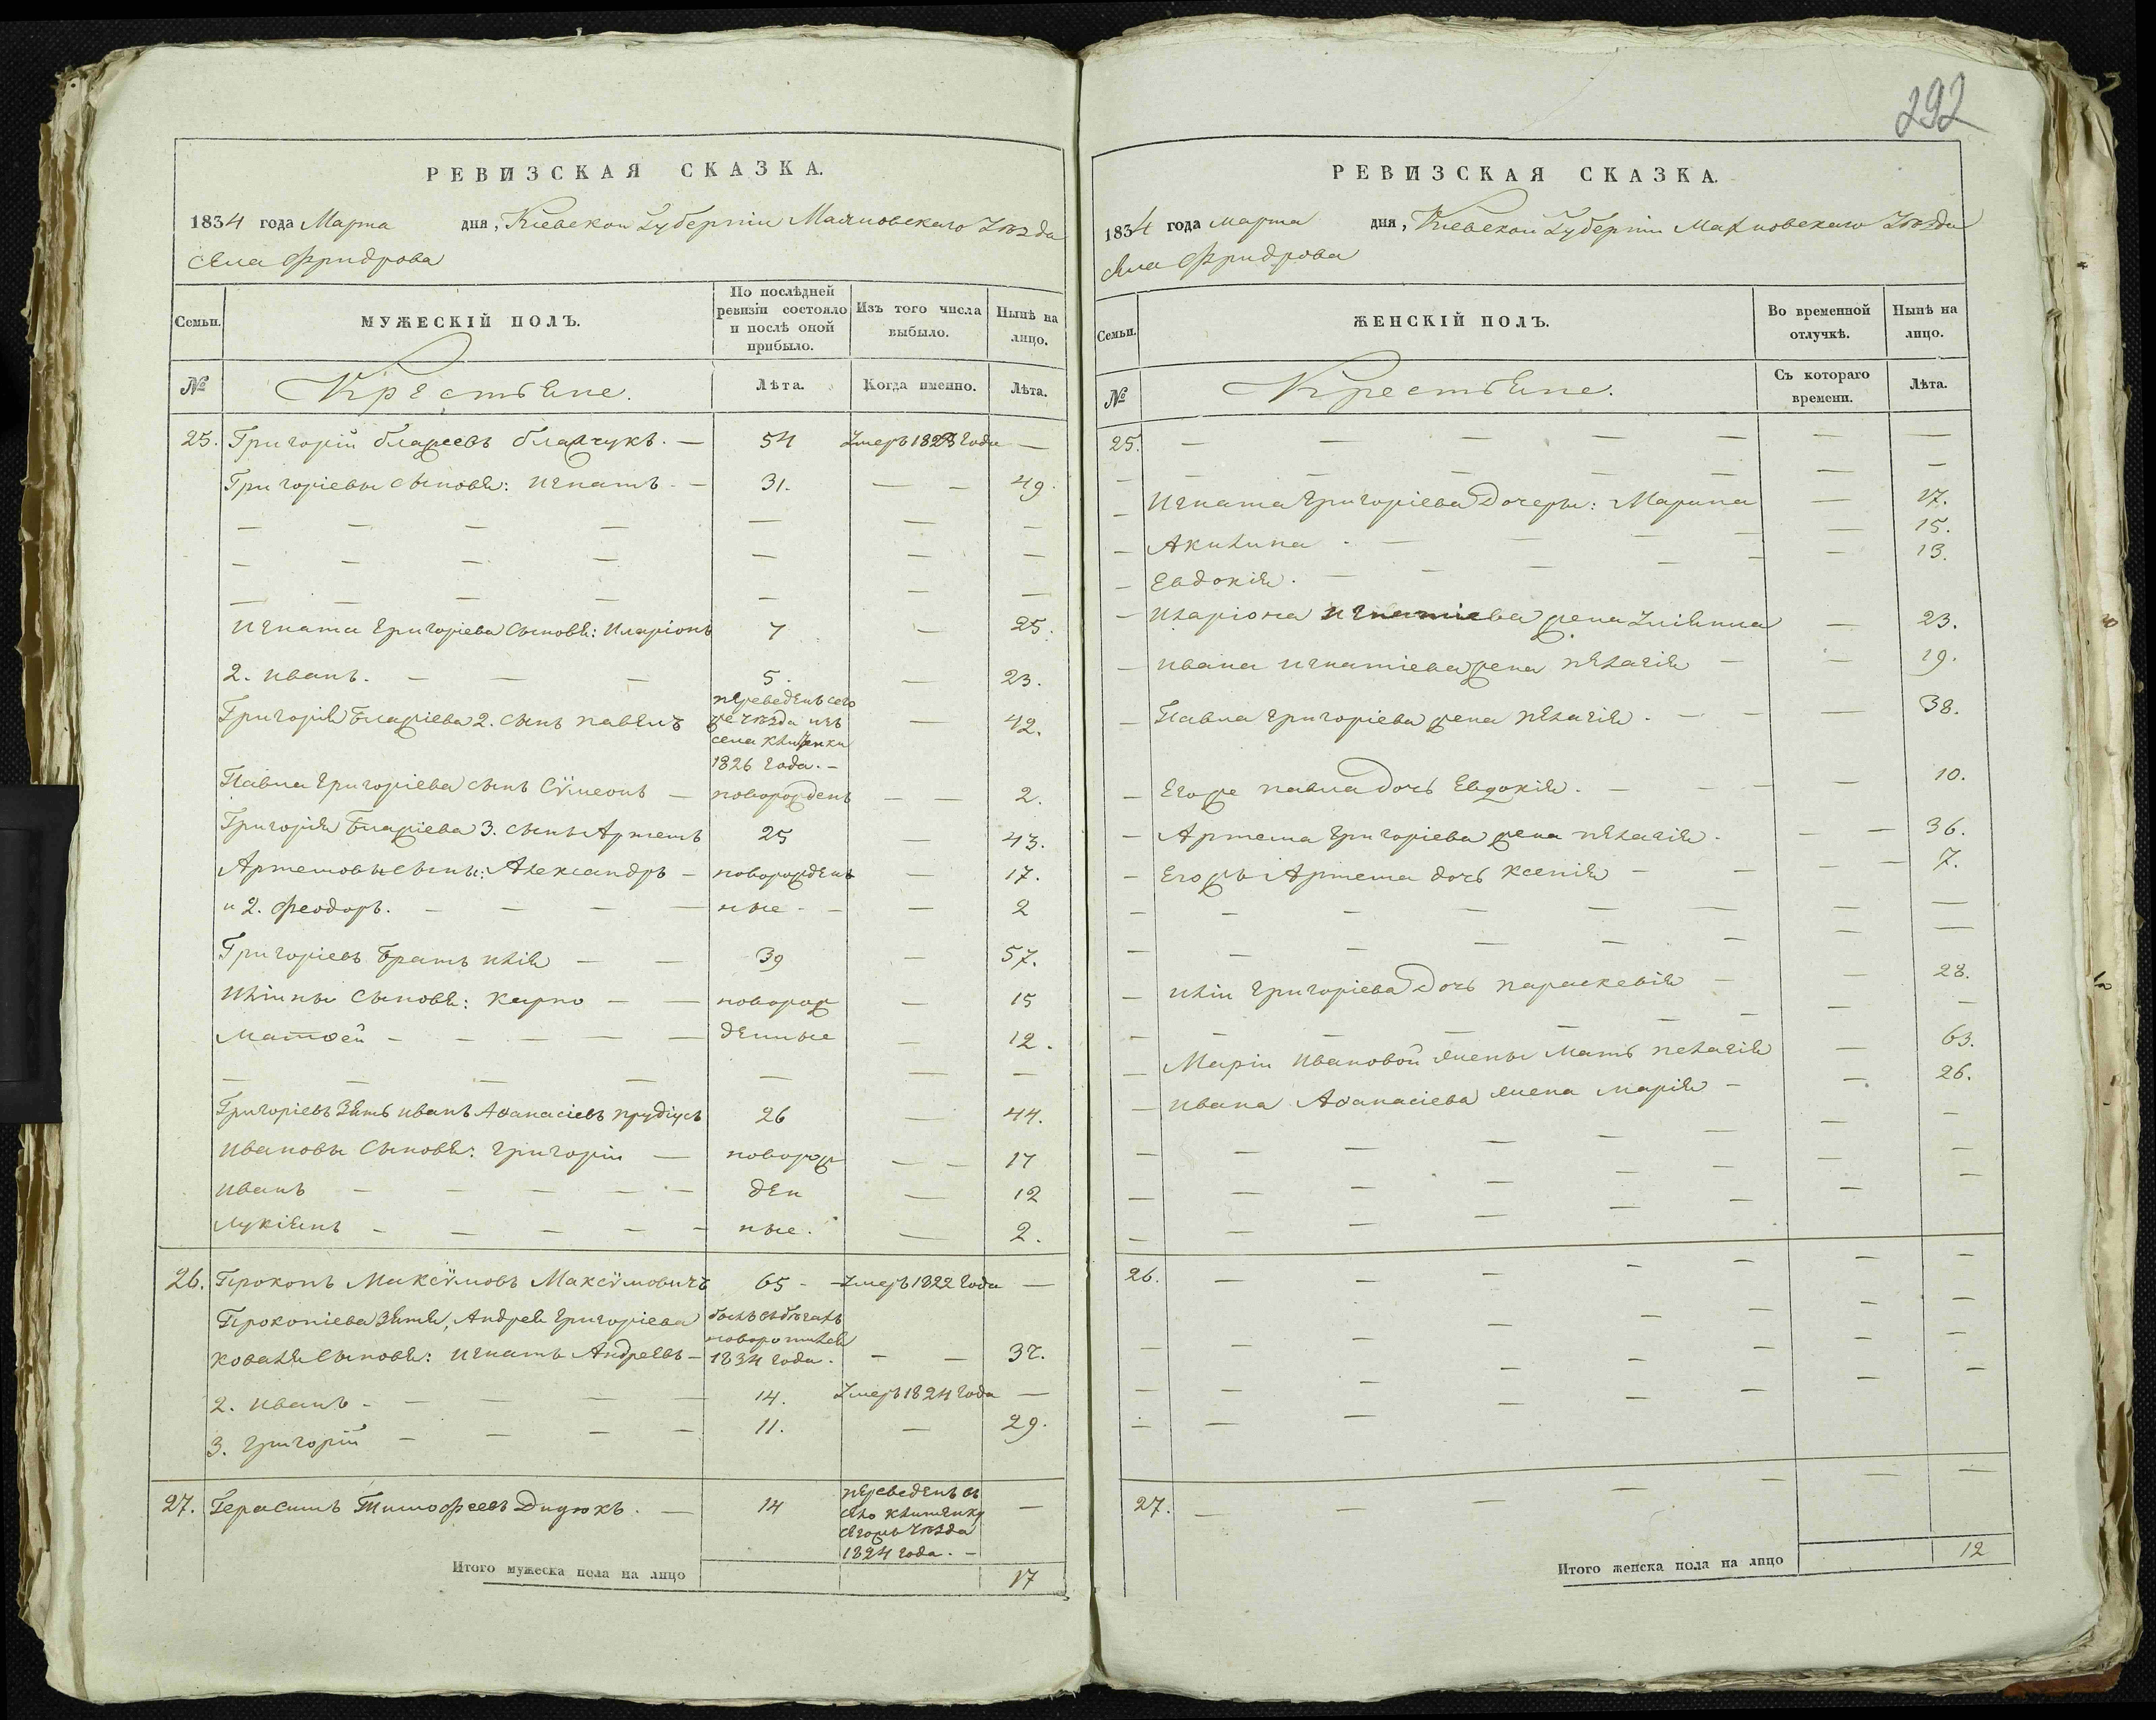 292
РЕВИЗСКАЯ СКАЗКА.
1834 года Марта дня, Кіевской Губерніи Махновскаго Уѣзда
села Фридрова
Семьи. МУЖЕСКІЙ ПОЛЪ. По послѣдней ревизіи состояло и послѣ оной прибыло. Изъ того числа выбыло. Нынѣ на лицо.
№ Крестьяне. Лѣта. Когда именно. Лѣта.
25. Григорій 54 Умеръ 1828 Года —
Григоріевы сыновья: Игнатъ. — 31. — — 49.
— — — — — — —
— — — — — — —
— — — — — — —
Игната Григоріева сыновья: Иларіонъ 7 — 25.
2. Иванъ. — — — 5. — 23.
Григорія 2. сынъ Павелъ переведенъ сего же уѣзда изъ села 1826 года. — — 42.
Павла Григоріева сынъ Сѵмеонъ — новорожденъ — — 2.
Григорія 3. сынъ Артемъ 25 — 43.
Артемовы сыны: Александръ — новорожден — 17.
и 2. Феодоръ. — — — — ные — — — 2
Григоріевъ братъ Илія — — 39 — 57.
Иліины сыновья: Карпо — — новорож — 15
Матѳей — — — — — денные — 12.
— — — — — — —
Григоріевъ Зять Иванъ Аѳанасіевъ 26 — 44.
Ивановы сыновья: Григорій — новорож — — 17
Иванъ — — — — — ден — 12
Лукіянъ — — — — — ные. — 2.
26. Прокопъ Максѵмовъ Максѵмовичъ 65 — Умеръ 1822 Года —
Прокопіева Зятя, Андрея Григоріева былъ въ бѣгахъ
Коваля сыновья: Игнатъ Андреевъ — 1834 года. — — 37.
2. Иванъ. — — — — 14. Умеръ 1824 Года —
3. Григорій — — — — 11. — 29.
27. Герасимъ Тимофеевъ Дидюкъ. — 14 переведенъ въ село уѣзда 1824 года. — —
Итого мужеска пола на лицо 17
РЕВИЗСКАЯ СКАЗКА.
1834 года марта дня, Кіевской Губерніи Махновскаго Уѣзда
села Фридрова
Семьи. ЖЕНСКІЙ ПОЛЪ. Во временной отлучкѣ. Нынѣ на лицо.
№ Крестьяне. Съ котораго времени. Лѣта.
25. — — — — — — —
— — — — — — —
— Игната Григоріева Дочеры: Марина — 17.
— Акилина — — — — — 15.
— Евдокія. — — — — — 13.
— Иларіона Игнатіева жена — 23.
— Ивана Игнатіева жена Пелагія — — 19.
— Павла Григоріева жена Пелагія. — — — 38.
— Егоже Павла Дочь Евдокія. — — — — 10.
— Артема Григоріева жена Пелагія. — — 36.
— Егожъ Артема дочь Ксенія — — — — 7.
— — — — — — — —
— — — — — — —
— Иліи Григоріева Дочь Параскевія — — 28.
— — — — — — —
— Маріи Ивановой жены Мать Пелагія — 63.
— Ивана Аѳанасіева жена Марія — — 26.
— — — — — — —
— — — — — — —
— — — — — — —
26. — — — — — — —
— — — — — — —
— — — — — — —
— — — — — — —
27. — — — — — — —
Итого женска пола на лицо 12